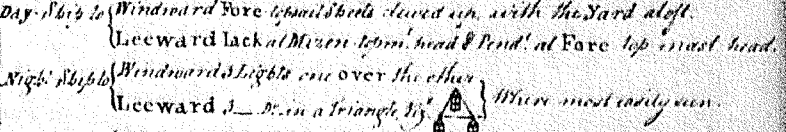 Day. Ship to { Windward Fore topsail Sheets clewed up, with the Yard aloft.
Leeward Jack at Mizen topmt. head & Pendt. at Fore top mast head.
Night Ship to { Windward 3 Lights one over the other
Leeward 3 — Do. in a Triangle, } Where most easily seen.